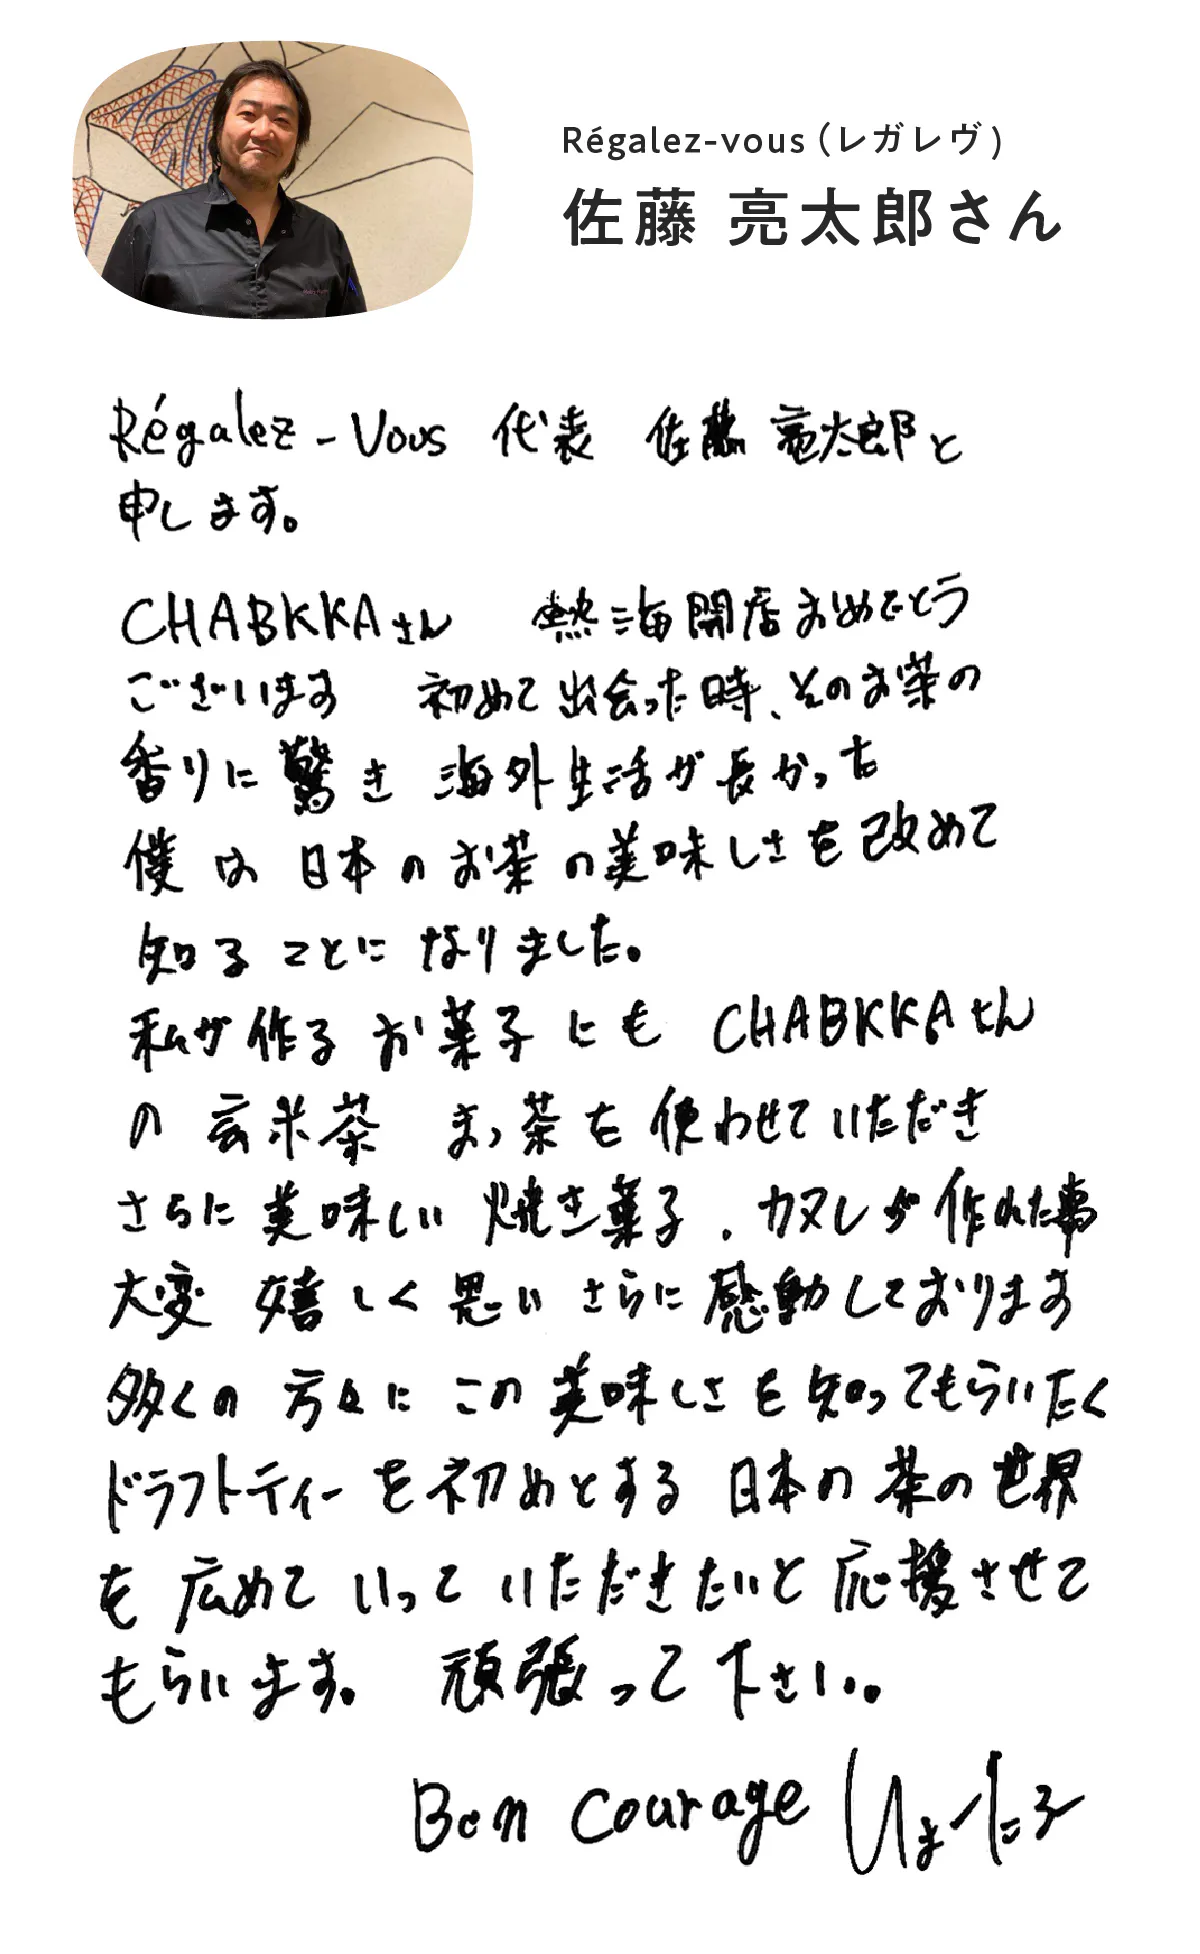 Régalez-vous（レガレヴ）
佐藤 亮太郎さん
Régalez-Vous 代表 佐藤 亮太郎と
申します。
CHABKKAさん 熱海開店おめでとう
ございます 初めて出会った時、そのお茶の
香りに驚き 海外生活が長かった
僕は 日本のお茶の美味しさを改めて
知ることに なりました。
私が作る お菓子にも CHABKKAさん
の 玄米茶 まっ茶を使わせていただき
さらに美味しい 焼き菓子、カヌレが作れた事
大変 嬉しく思い さらに感動しております
多くの 方々に この美味しさを知ってもらいたく
ドラフトティーを初めとする 日本の茶の世界
を 広めて いって いただきたいと応援させて
もらいます。 頑張って下さい。
Bon Courage りょーたろ